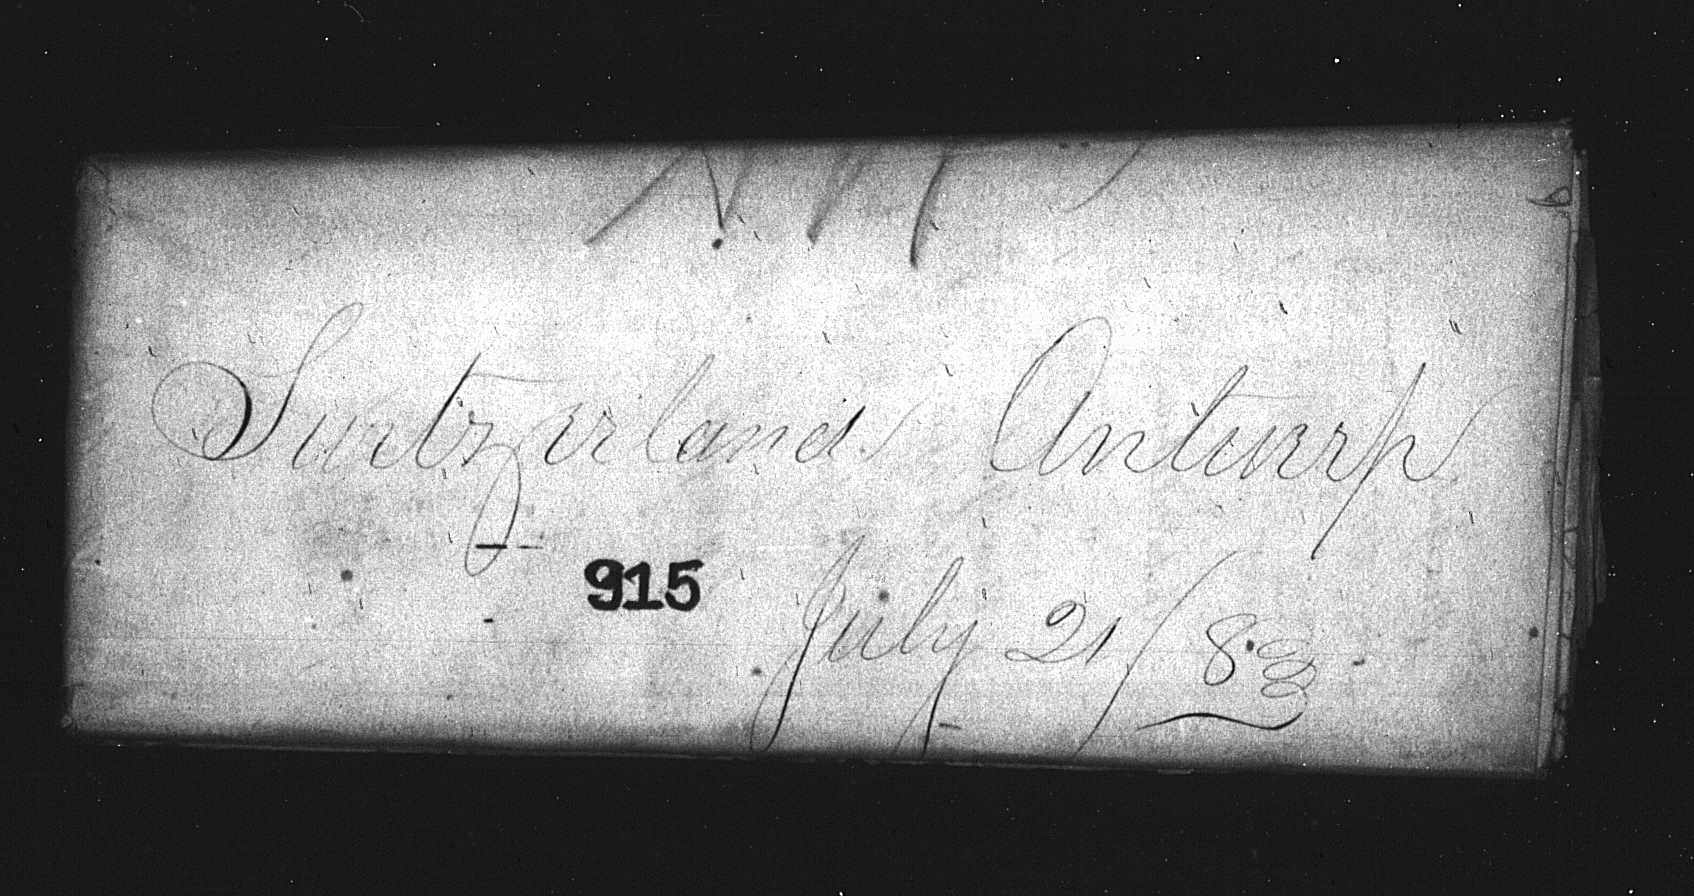 Switzerland Antwerp
915
July 21/88